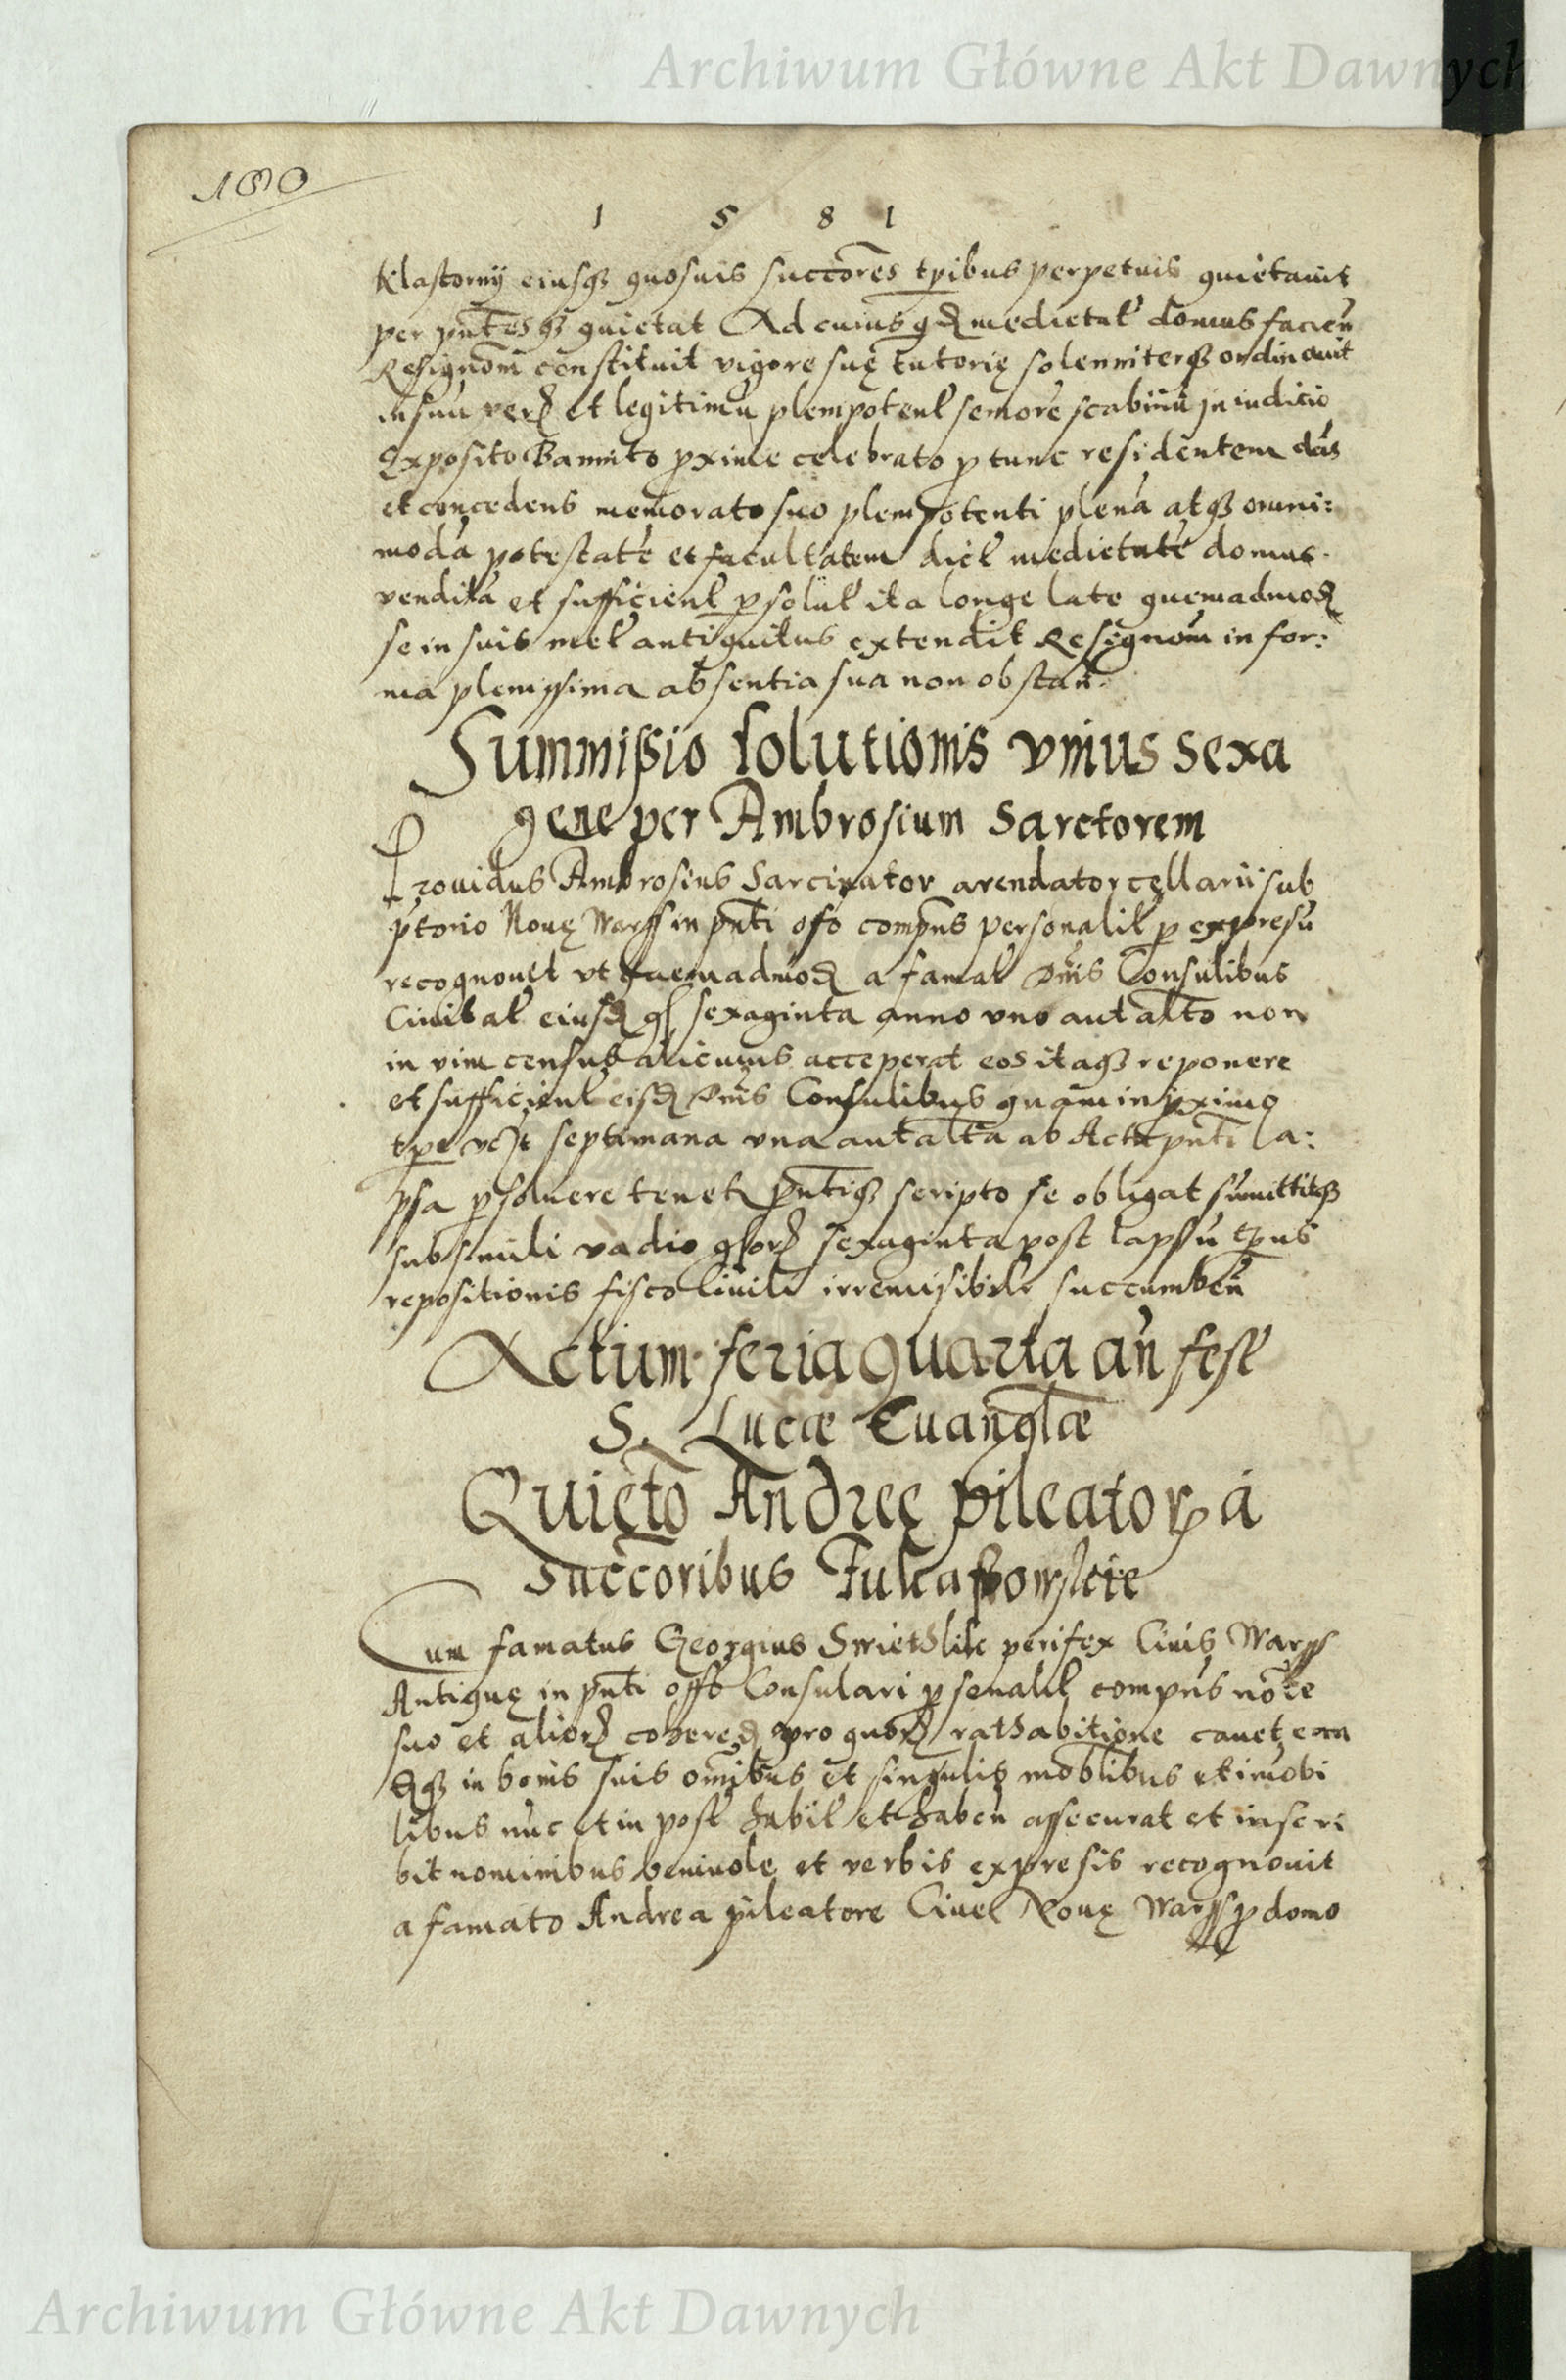 Archiwum Główne Akt Dawnych
180
1 5 8 1
Klastorny eiusqz quosuis succōres tpībus perpetuis quietauit
per pntēsqz quietat Ad cuius qd medietat domus facien
Resignōm constituit vigore suę tutorię solenniterqz ordinauit
in suū verū et legitimū plenipotent semorē scabinū in iudicio
Exposito Bannito pxime celebrato p tunc residentem dās
et concedens memorato suo plenipotenti plenā atqz omni:
modā potestatē et facultatem dict medietatē domus
venditā et sufficient psolut ita longe late quemadmod
se in suis met antiquitus extendit Resignōm in for:
ma plenissima absentia sua non obstan.
Summißio solutionis vnius sexa
gene per Ambrosium Sarctorem
Prouidus Ambrosius Sarcinator arendator cellarii sub
ptorio Nouę Warss in pnti offo compns personalit p expresū
recognouit vt quemadmod a famat Dnis Consulibus
Ciuitat eiusd gs sexaginta anno vno aut alto non
in vim census alicuius acceperat eos itaqz reponere
et sufficient eisd Dnis Consulibus quam in pximo
tpe vz septimana vna aut alta ab Actu pnti la:
psa psoluere tenet pntiqz scripto se obligat summittitqz
sub simili vadio gsor sexaginta post lapsū tpus
repositionis fisco Ciuili irremisibile succumben
Actum feria quarta an fest
S. Lucæ Euanglæ
Quieto Andreę pileatoris á
Succoribus
Cum famatus Georgius Swietħlik perifex Ciuis Warss
Antiquę in pnti offo Consulari psonalit compns nōīe
suo et alior cohered pro quor rathabitione cauet eon
dqz in bonis suis omībus et singulis moblibus et imobi
libus nūc et in post habit et haben assecurat et inscri
bit nominibus beniuole et verbis expresis recognouit
a famato Andrea pileatore Ciue Nouę Warss p domo
Archiwum Główne Akt Dawnych